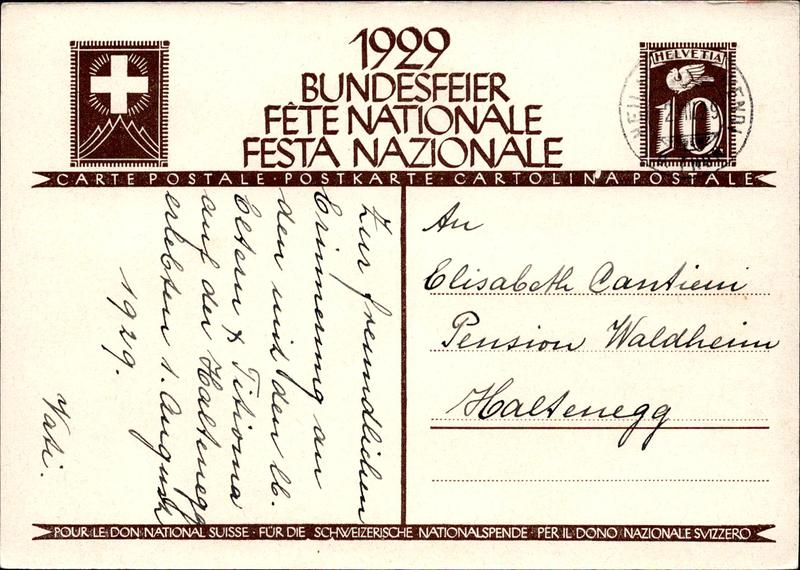 1929
BUNDESFEIER
FÊTE NATIONALE
FESTA NAZIONALE
HELVETIA
10
CARTE POSTALE POSTKARTE CARTOLINA POSTALE
Zur freundlichen
Erinnerung an
den mit den lb.
Eltern &
auf der Haltenegg
erlebten 1. August
1929.
Vati.
An
Elisabeth Cantieni
Pension Waldheim
Haltenegg
POUR LE DON NATIONAL SUISSE · FÜR DIE SCHWEIZERISCHE NATIONALSPENDE · PER IL DONO NAZIONALE SVIZZERO